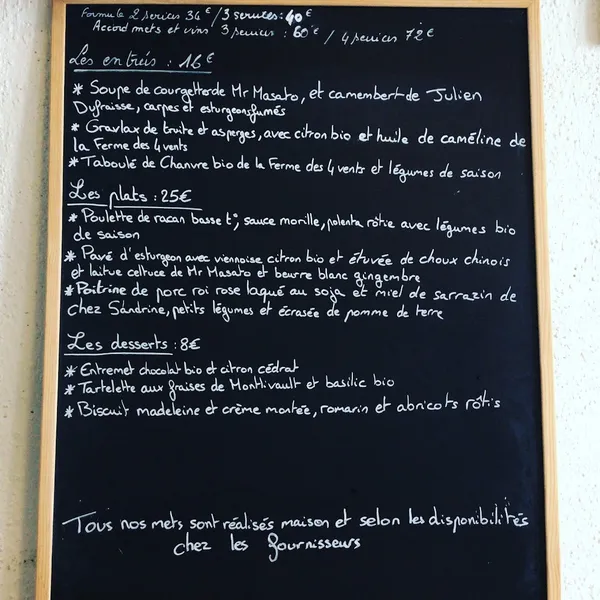 Formule 2 services 34€ / 3 services: 40€
Accord mets et vins 3 services : 60€ / 4 services 72€
Les entrés : 16€
* Soupe de courgette de Mr Masato, et camembert de Julien
Dufraisse, carpes et esturgeons fumés
* Gravlax de truite et asperges, avec citron bio et huile de caméline de
la Ferme des 4 vents
* Taboulé de Chanvre bio de la Ferme des 4 vents et légumes de saison
Les plats : 25€
* Poulette de racan basse t°, sauce morille, polenta rôtie avec légumes bio
de saison
* Pavé d'esturgeon avec viennoise citron bio et étuvée de choux chinois
et laitue celtuce de Mr Masato et beurre blanc gingembre
* Poitrine de porc roi rose laqué au soja et miel de sarrazin de
chez Sandrine, petits légumes et écrasée de pomme de terre
Les desserts : 8€
* Entremet chocolat bio et citron cédrat
* Tartelette aux fraises de Montlivault et basilic bio
* Biscuit madeleine et crème montée, romarin et abricots rôtis
Tous nos mets sont réalisés maison et selon les disponibilités
chez les fournisseurs